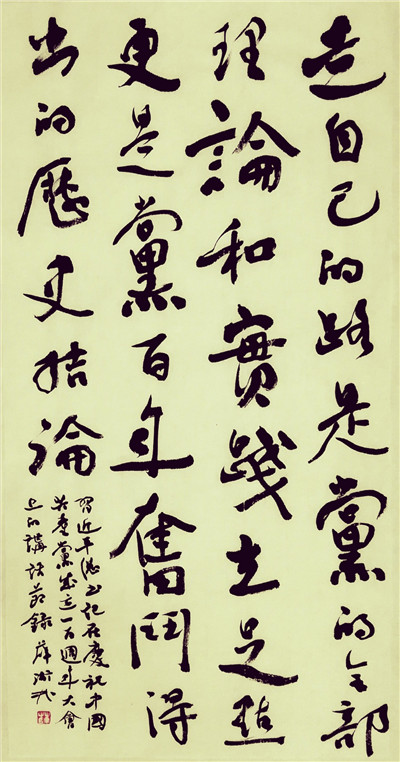 走自己的路是黨的全部
理論和實踐立足點
更是黨百年奮鬥得
出的歷史結論
習近平總書記在慶祝中國
共產黨成立一百週年大會
上的講話節錄 薛